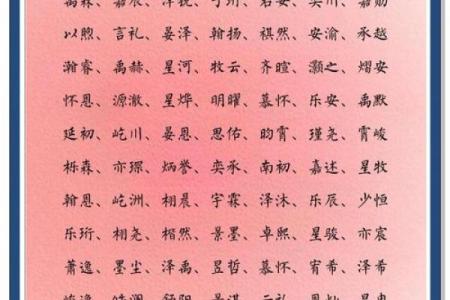 禹霖、嘉辰、泽祝、子州、君安、奕川、嘉勋
以煦、言礼、晏泽、翰扬、祺然、安渝、承越
瀚睿、禹赫、星河、牧云、齐暄、灏之、熠安
怀恩、源澈、星烨、明曜、慕怀、乐安、禹默
延初、屹川、晏恩、思佑、昀霄、瑾尧、霄峻
栎森、亦琛、炳誉、奕承、南初、嘉述、星牧
翰恩、屹洲、栩晨、宇霖、泽沐、乐辰、少恒
乐珩、栩尧、楷然、景墨、卓熙、星骏、亦宸
萧逸、墨尘、泽禹、昱哲、慕怀、宥希、泽希